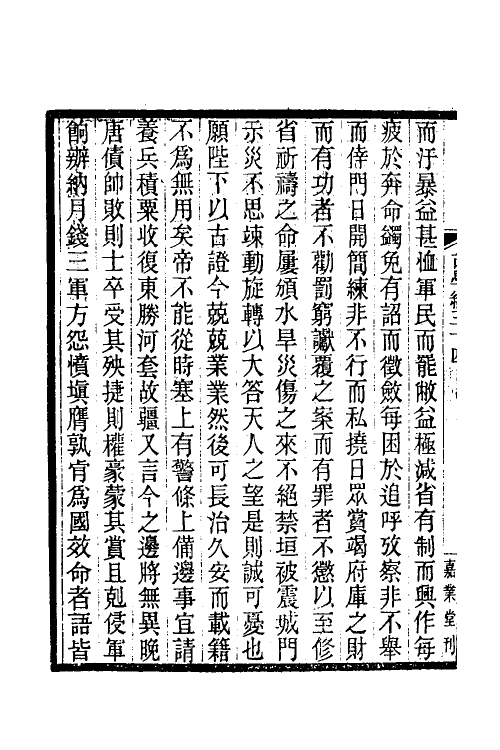 而汙暴益甚恤軍民而罷敝益極減省有制而興作每
疲於奔命蠲免有詔而徵斂每困於追呼攷察非不舉
而倖門日開簡練非不行而私撓日眾賞竭府庫之財
而有功者不勸罰窮讞覆之案而有罪者不懲以至修
省祈禱之命屢頒水旱災傷之來不絕禁垣被震城門
示災不思竦動旋轉以大答天人之望是則誠可憂也
願陛下以古證今兢兢業業然後可長治久安而載籍
不爲無用矣帝不能從時塞上有警條上備邊事宜請
養兵積粟收復東勝河套故疆又言今之邊將無異晚
唐債帥敗則士卒受其殃捷則權豪蒙其賞且剋侵軍
餉辦納月錢三軍方怨憤塡膺孰肯爲國效命者語皆
嘉業堂刊